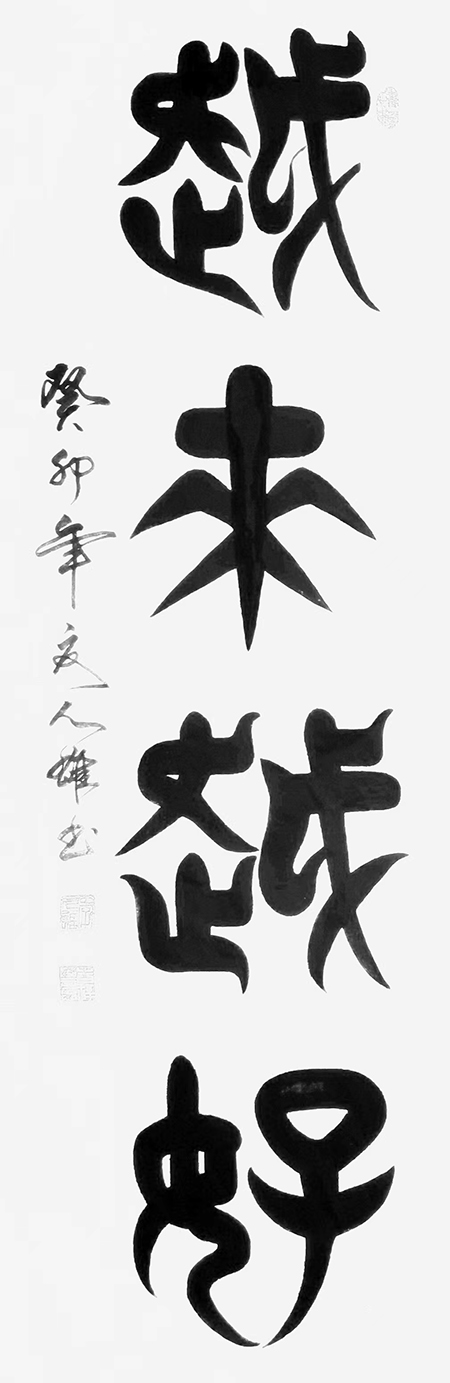 越来越好
癸卯年夏人雄书